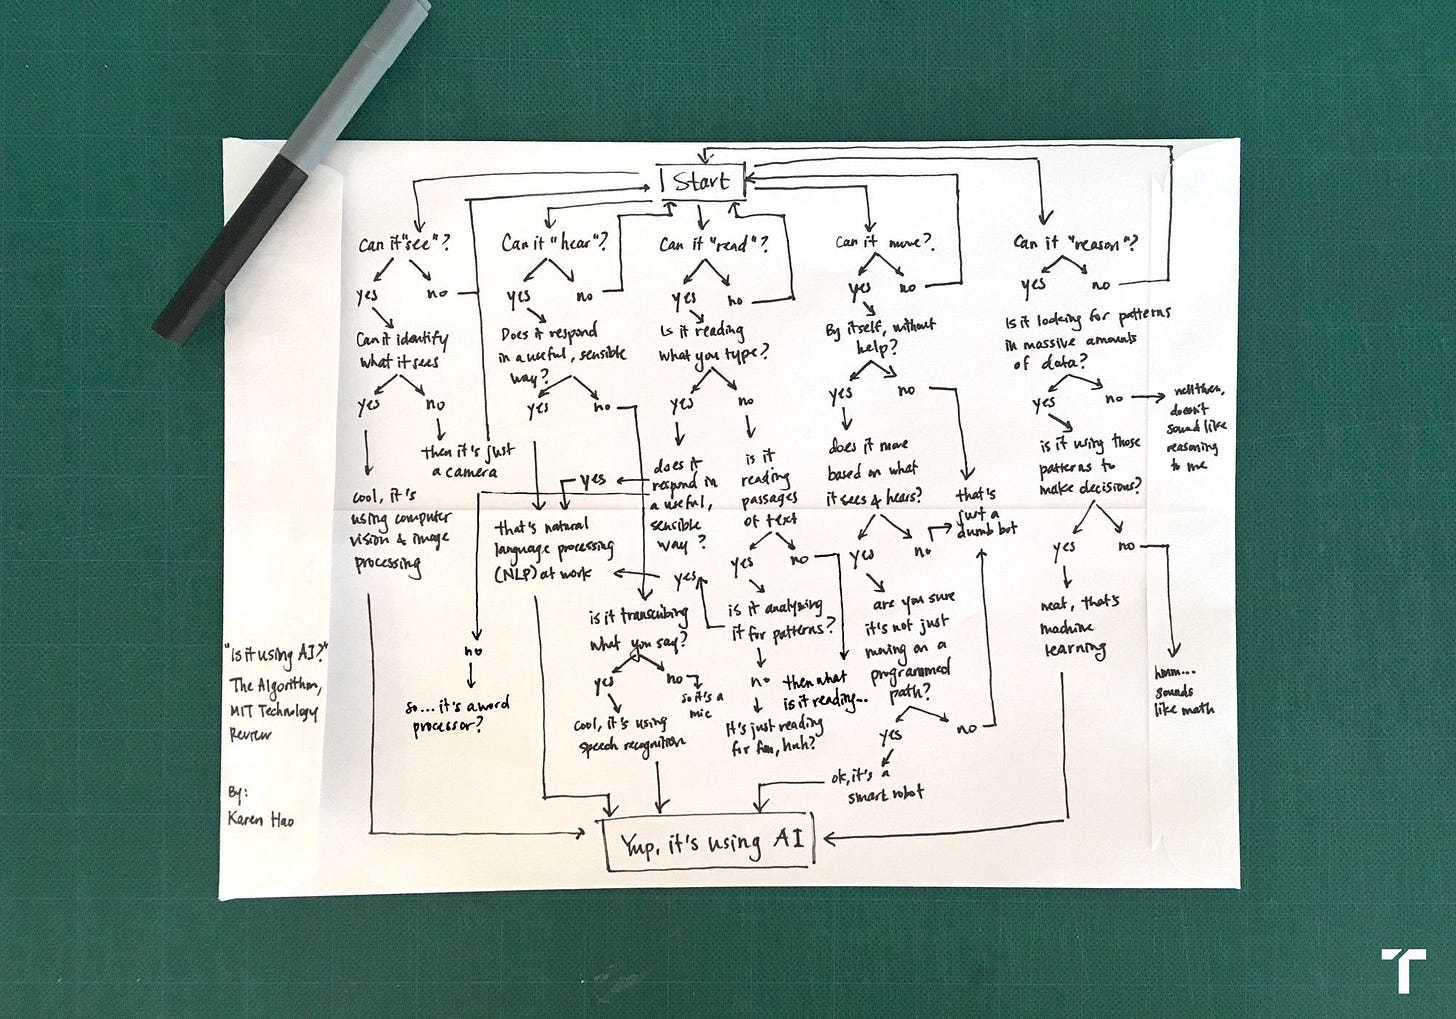 Start
Can it "see"?
yes
no
Can it identify
what it sees
yes
no
then it's just
a camera
cool, it's
using computer
vision & image
processing
Can it "hear"?
yes
no
Does it respond
in a useful, sensible
way?
yes
no
That's natural
language processing
(NLP) at work
is it transcribing
what you say?
yes
no
so it's a
mic
cool, it's using
speech recognition
Can it "read"?
yes
no
Is it reading
what you type?
yes
no
does it
respond in
a useful,
sensible
way?
yes
no
so... it's a word
processor?
is it
reading
passages
of text
yes
no
is it analyzing
it for patterns?
yes
no
It's just reading
for fun, huh?
then what
is it reading...
Can it move?
yes
no
By itself, without
help?
yes
no
does it move
based on what
it sees & hears?
yes
no
that's
just a
dumb bot
are you sure
it's not just
moving on a
programmed
path?
yes
no
ok, it's a
smart robot
Can it "reason"?
yes
no
Is it looking for patterns
in massive amounts
of data?
yes
no
well then,
doesn't
sound like
reasoning
to me
is it using those
patterns to
make decisions?
yes
no
neat, that's
machine
learning
hmm...
sounds
like math
Yup, it's using AI
"Is it using AI?"
The Algorithm,
MIT Technology
Review
By:
Karen Hao